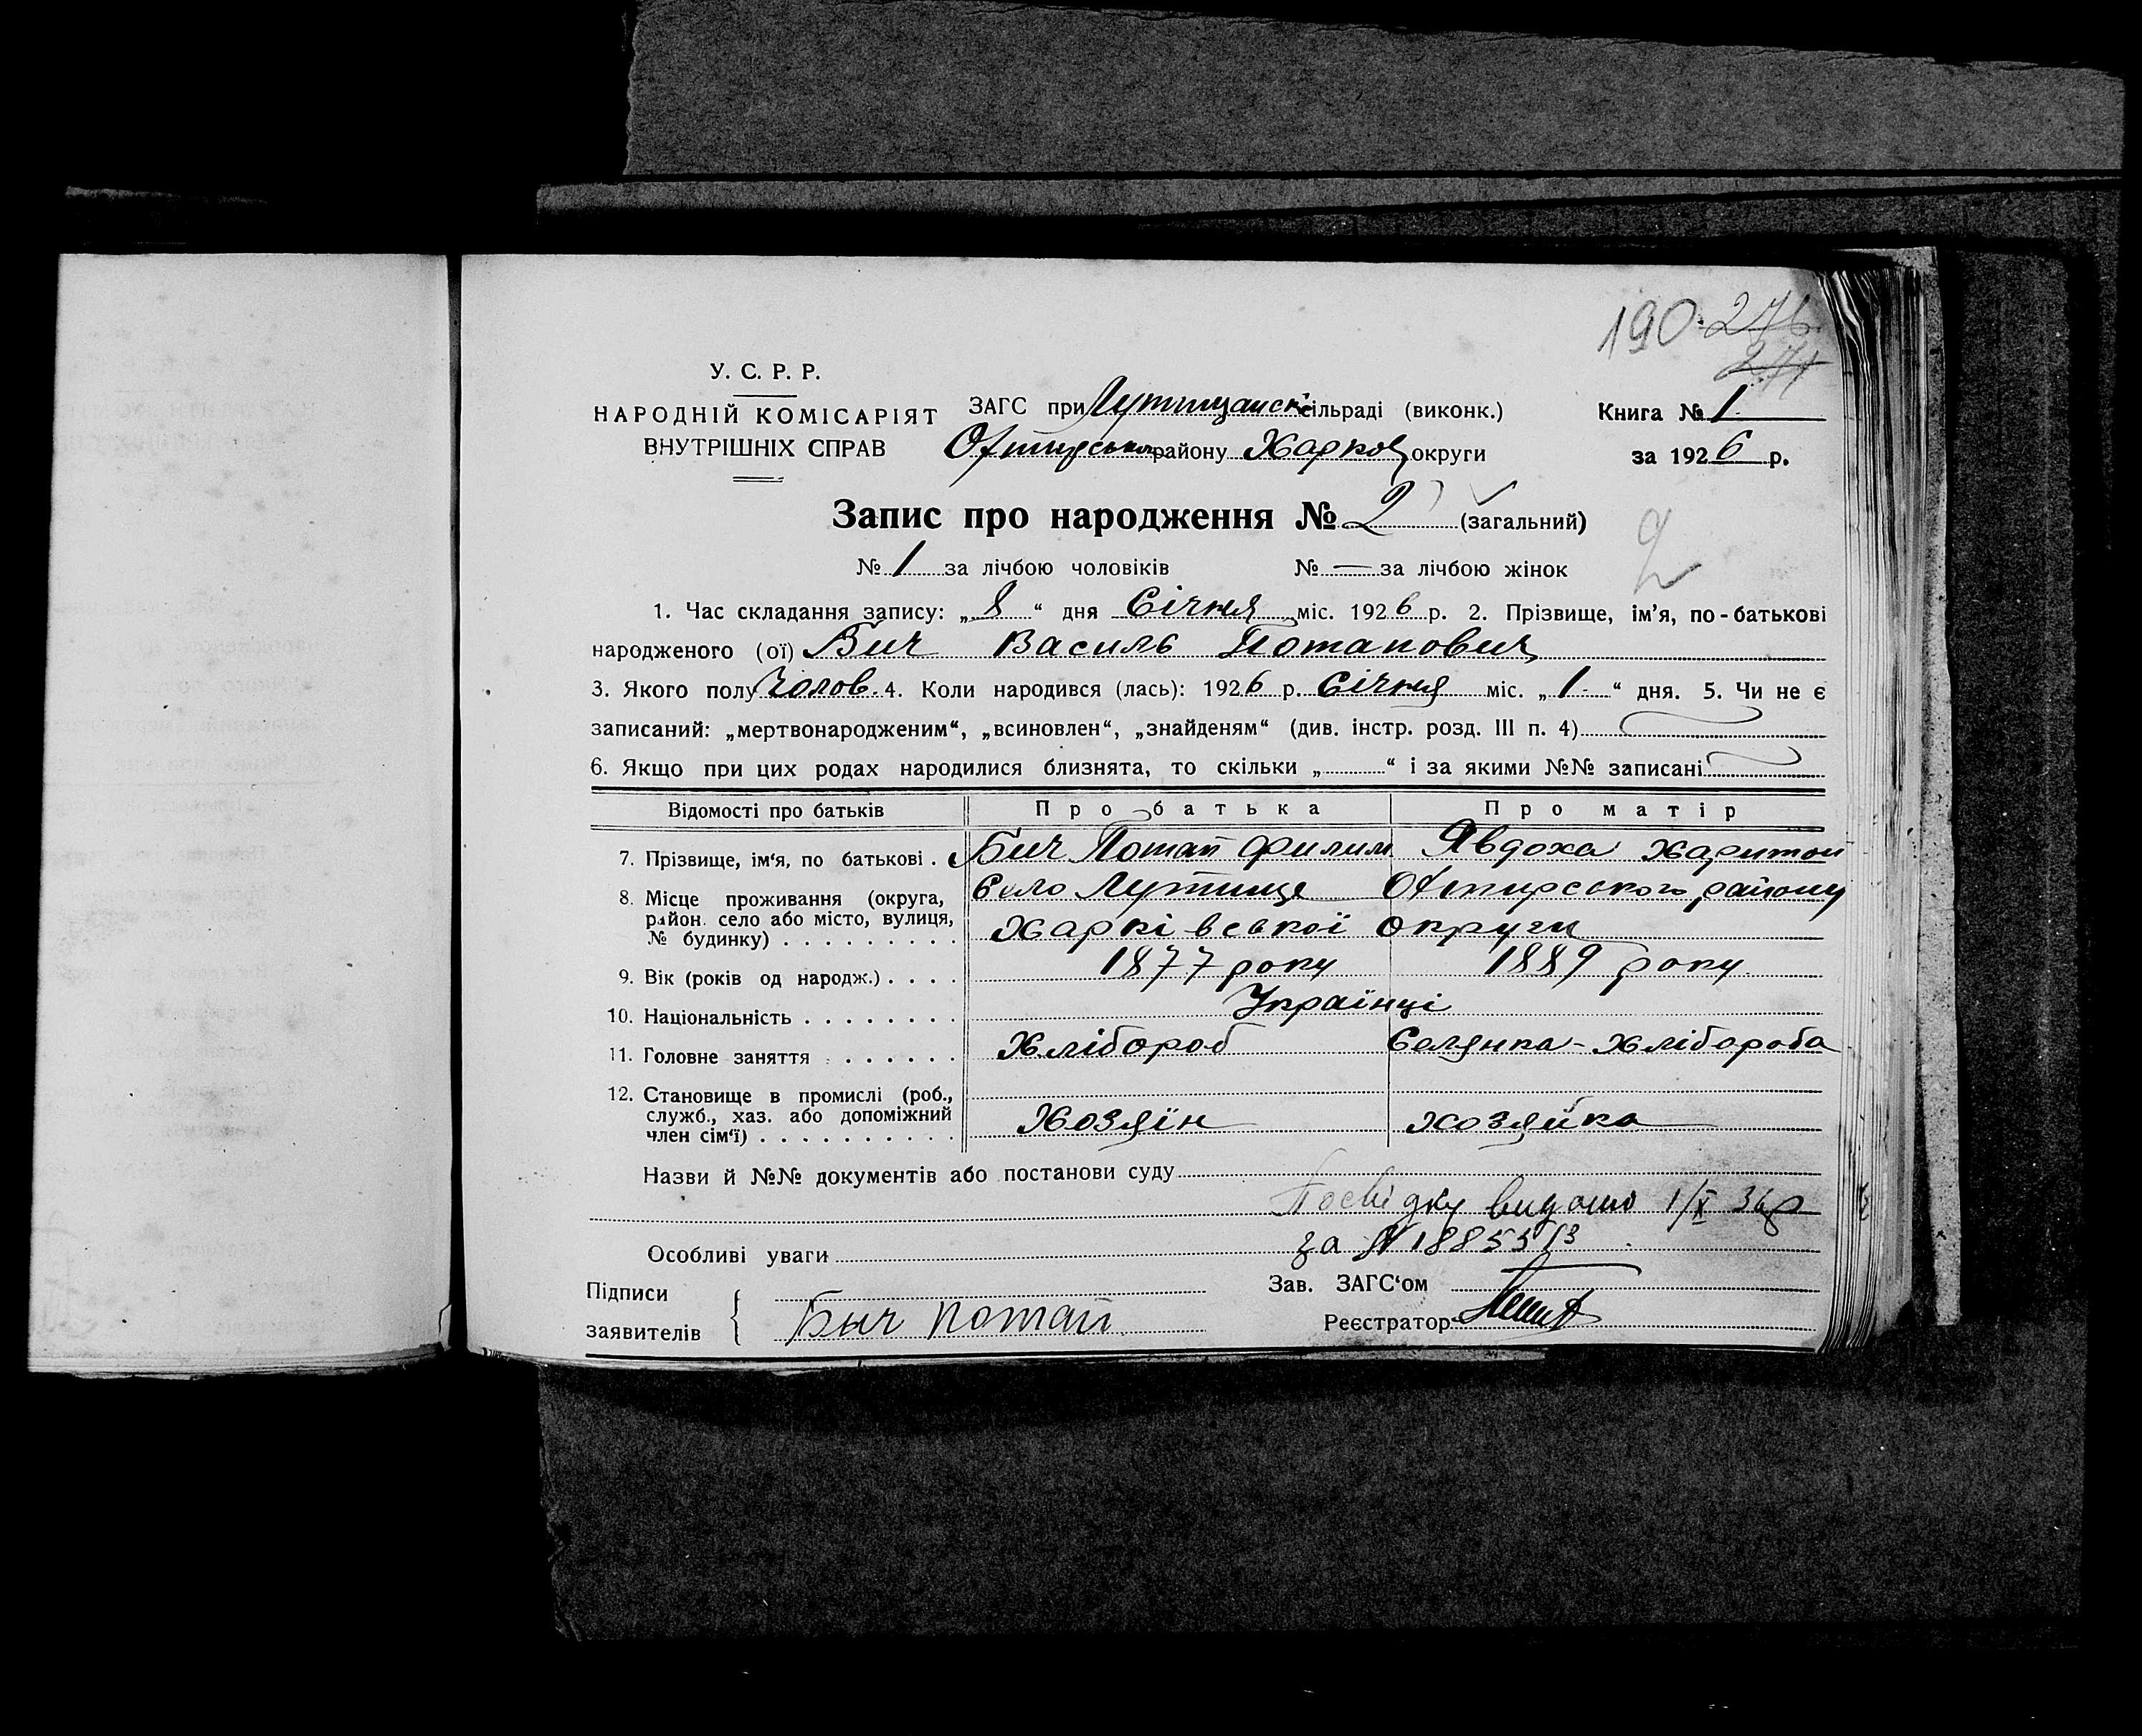 190 276
271
У. С. Р. Р.
НАРОДНІЙ КОМІСАРІЯТ
ВНУТРІШНІХ СПРАВ
ЗАГС при Лутищанскі сільраді (виконк.)
Охтирськ району Харков округи
Книга № 1
за 1926 р.
Запис про народження № 2 (загальний)
2
№ 1 за лічбою чоловіків № — за лічбою жінок
1. Час складання запису: „8“ дня Січня міс. 1926 р. 2. Прізвище, ім’я, по-батькові
народженого (ої) Бич Василь Потапович
3. Якого полу Чолов. 4. Коли народився (лась): 1926 р. Січня міс. „1“ дня. 5. Чи не є
записаний: „мертвонародженим“, „всиновлен“, „знайденям“ (див. інстр. розд. III п. 4)
6. Якщо при цих родах народилися близнята, то скільки „ “ і за якими №№ записані
Відомості про батьків Про батька Про матір
7. Прізвище, ім‘я, по батькові . Бич Потап Филим Явдоха Харитон
8. Місце проживання (округа, район. село або місто, вулиця, № будинку) . . . . . . . . . Село Лутище Охтирського району
Харківської округи
9. Вік (років од народж.) . . . . 1877 року 1889 року
10. Національність . . . . . . . . Українці
11. Головне заняття . . . . . . . Хлібороб Селянка-Хлібороба
12. Становище в промислі (роб., служб., хаз. або допоміжний член сім‘ї) . . . . . . . . . . Хозяїн хозяйка
Назви й №№ документів або постанови суду
Посвідку видано 1/X 36р
Особливі уваги за № 188553
Підписи
заявителів
Быч потап
Зав. ЗАГС‘ом
Реєстратор